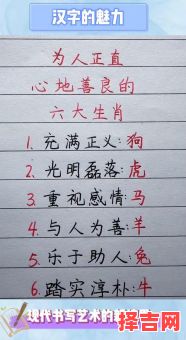 汉字的魅力
为人正直
心地善良的
六大生肖
1. 充满正义:狗
2. 光明磊落:虎
3. 重视感情:马
4. 与人为善:羊
5. 乐于助人:兔
6. 踏实淳朴:牛
现代书写艺术的
择吉网